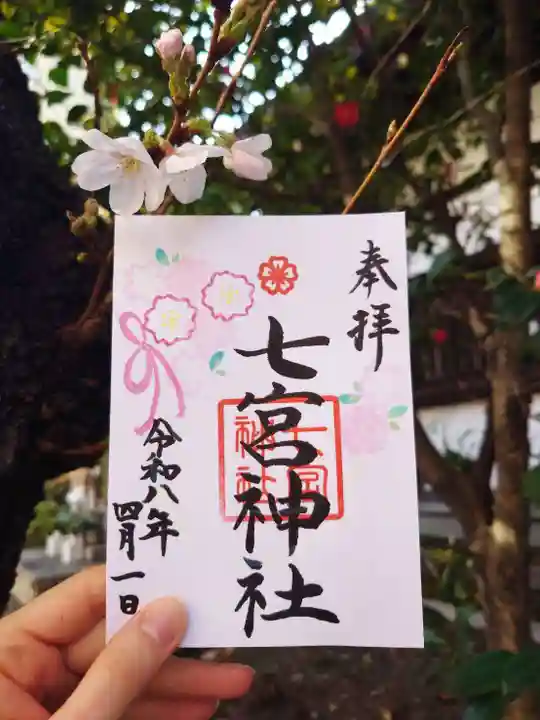 奉拝
七宮神社
七宮神社
令和八年
四月一日